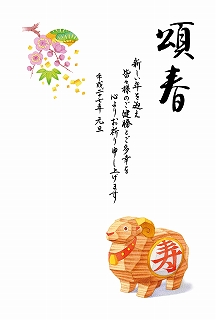 頌春
新しい年を迎え
皆々様のご健勝とご多幸を
心よりお祈り申し上げます
平成二十七年 元旦
寿